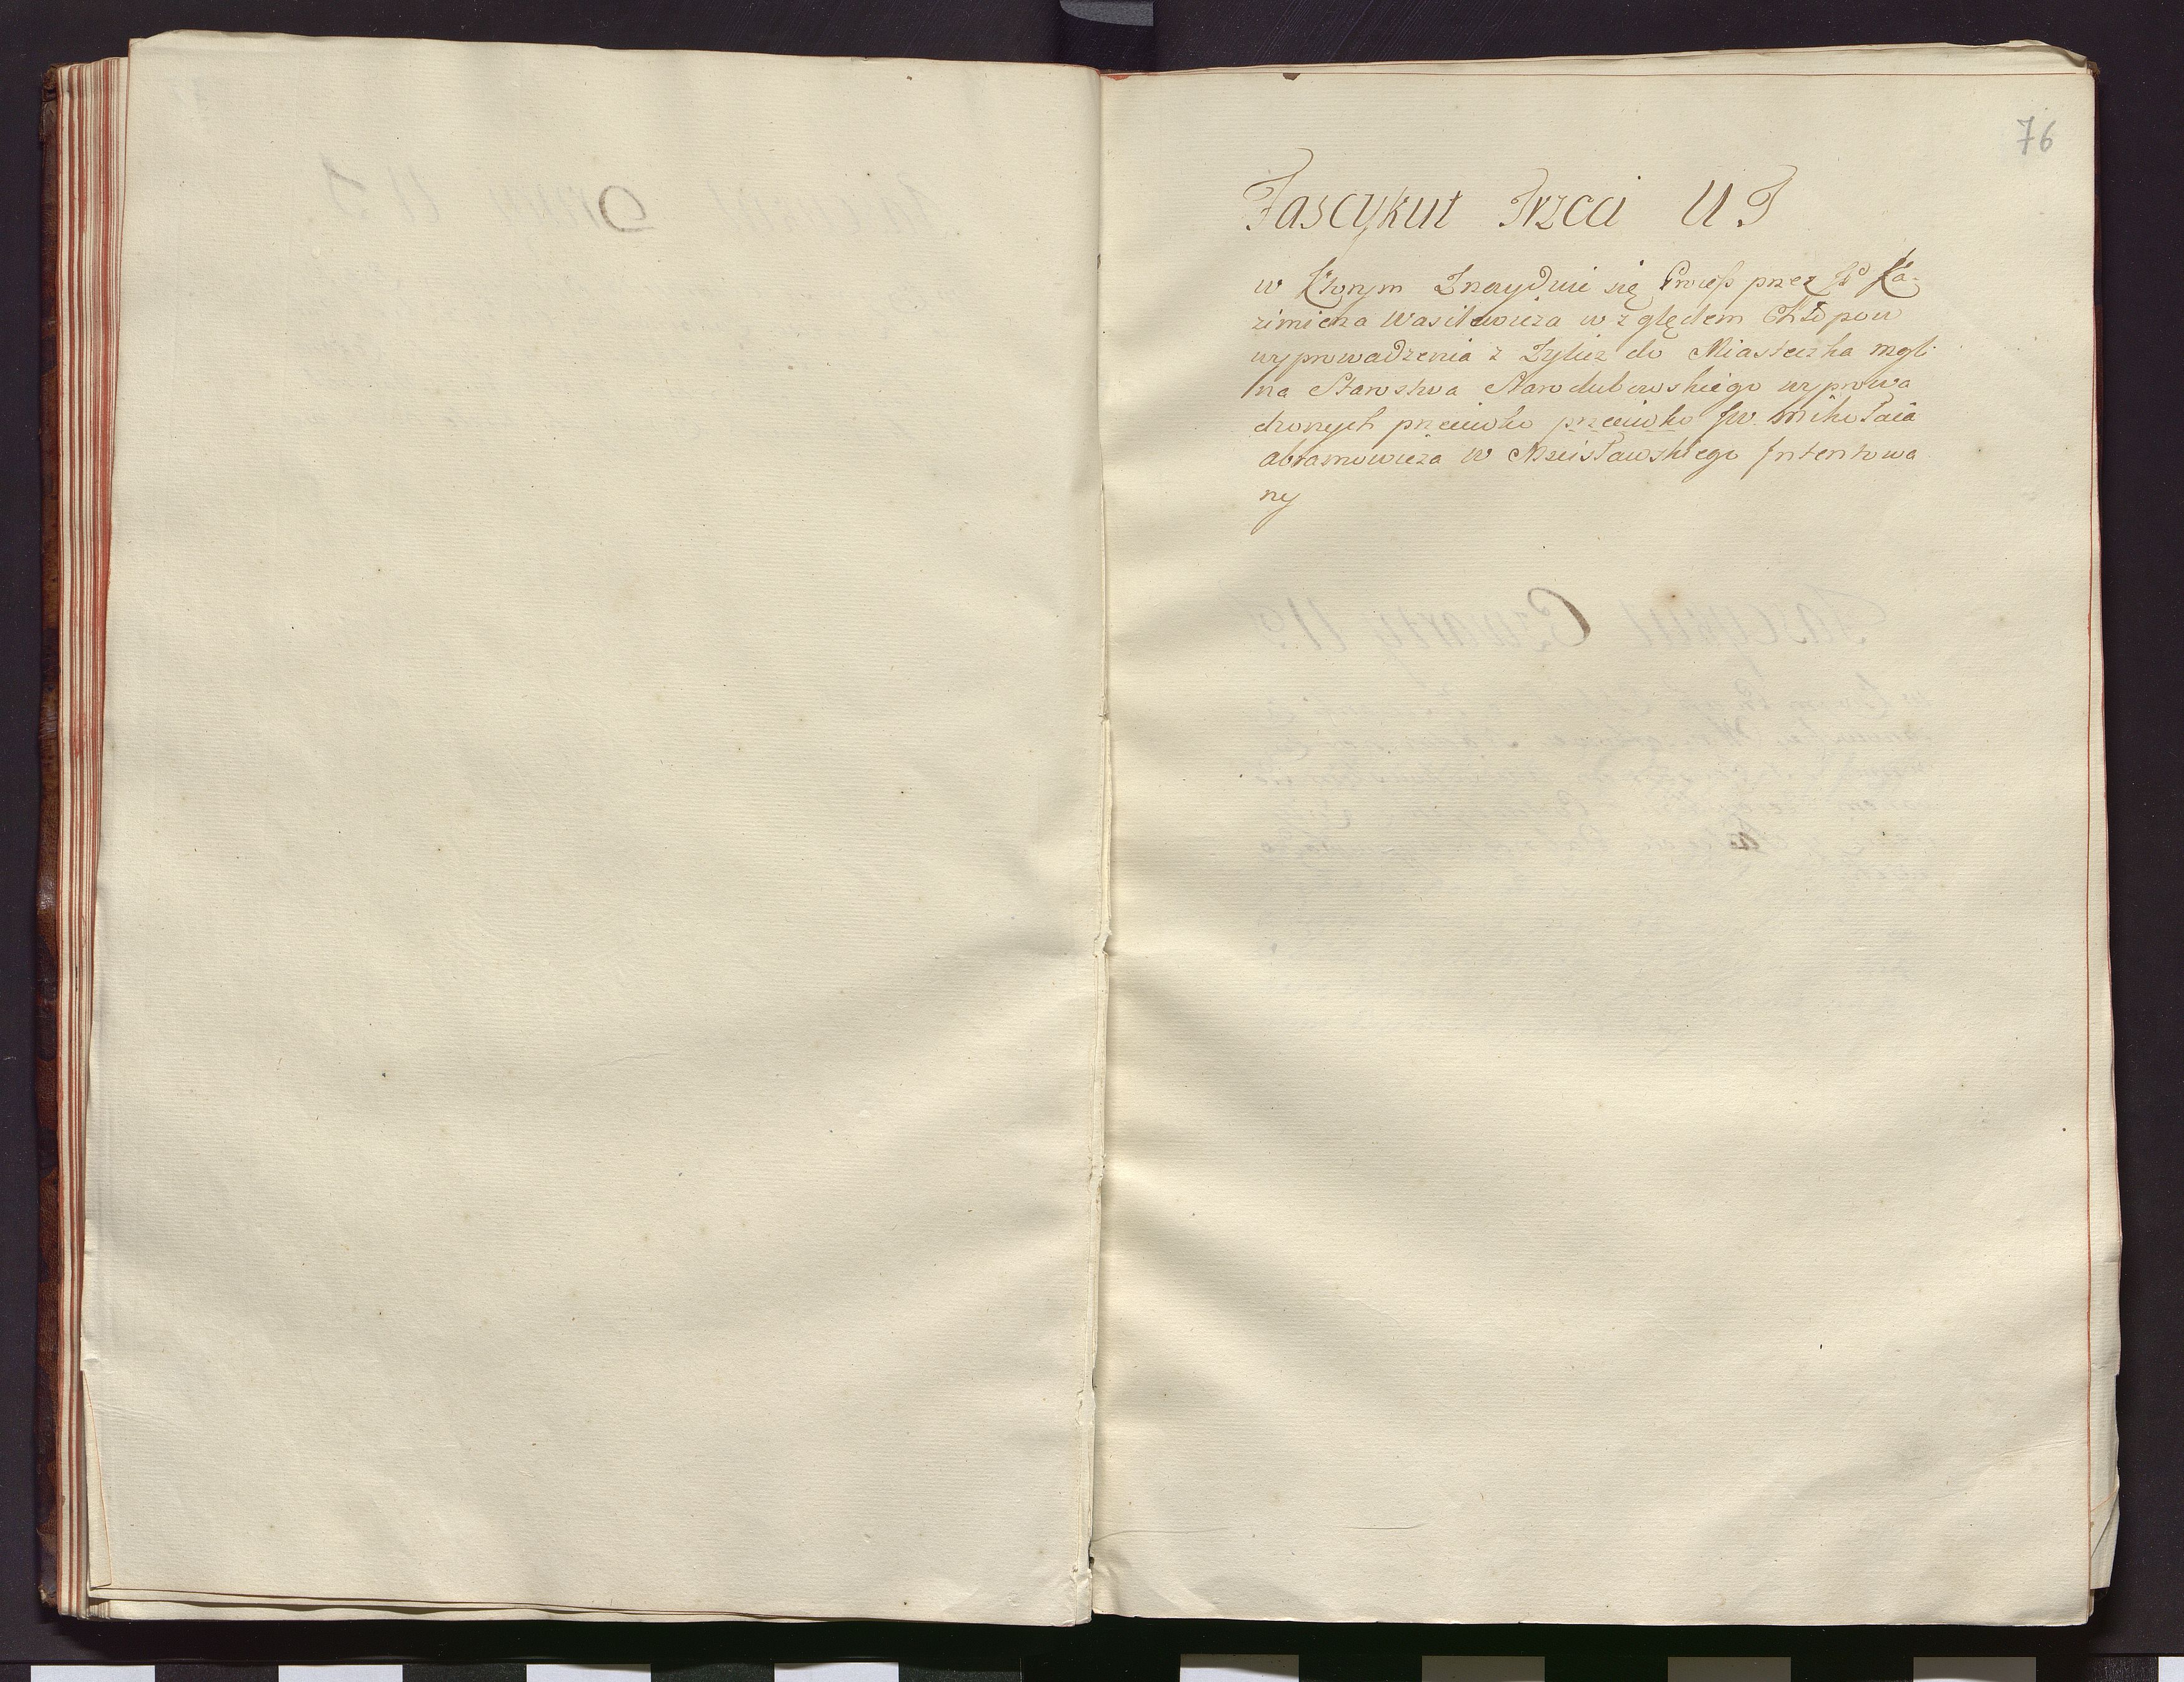 76
Fascykuł Trzeci U T
w Ktorym Znayduie się Process przez JP Ka-
zimierza Wasilewicza względem Chłopow
wyprowadzenia z Zylicz do Miasteczka mgli
na Starostwa Starodubowskiego wyprowa
dzonych przeciwko przeciwko JW mikołaia
abramowicza W Mscisławskiego Intentowa
ny